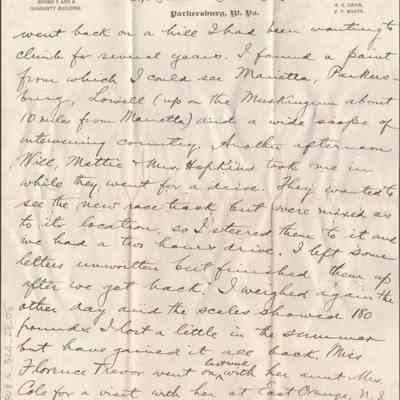 ROOMS 7 AND 8
CITIZENS BUILDING.
Parkersburg, W. Va.
went back on a hill I had been wanting to
climb for several years. I found a point
from which I could see Marietta, Parkers-
burg, Lowell (up on the Muskingum about
10 miles from Marietta) and a wide scope of
intervening country. Another afternoon
Will, Mattie & Mrs. Hopkins took me in
while they went for a drive. They wanted to
see the new race track but were mixed as
to its location, so I steered them to it and
we had a two hours drive. I left some
letters unwritten but finished them up
after we got back. I weighed again the
other day and the scales showed 180
pounds. I lost a little in the summer
but have gained it all back. Miss
Florence Trevor went on with her aunt Mrs.
Cole for a visit with her at East Orange, N. J.